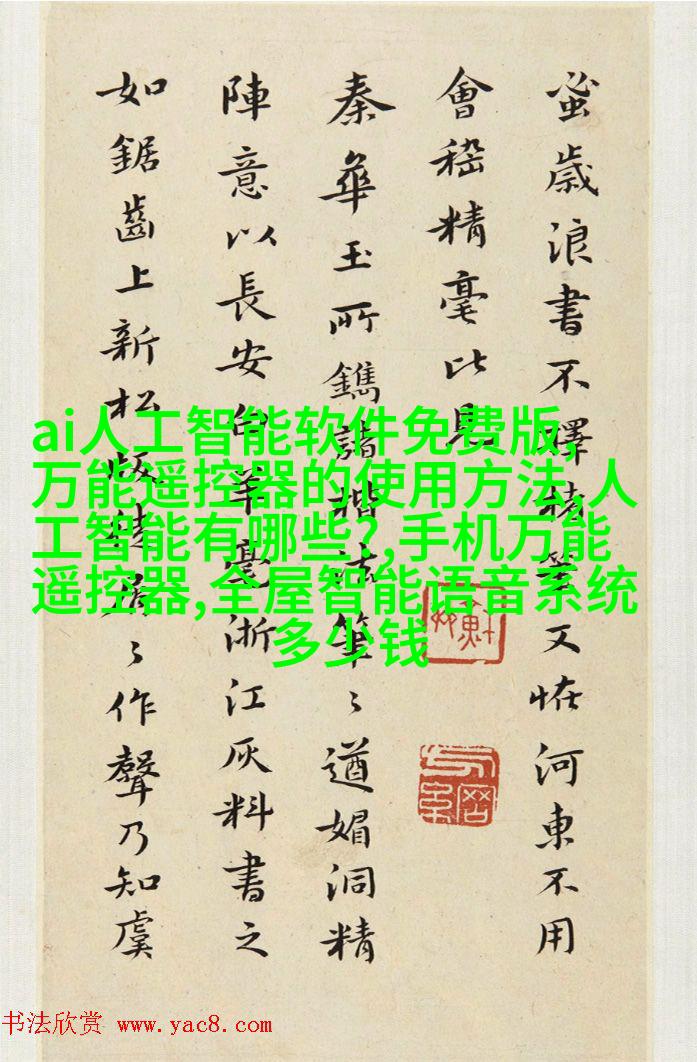 蚤歲浪書不擇筆又恠河東不用
會稽精毫比見
秦華玉所鐫諸楷法筆〻遒媚洞精
陣意以長安白羊毫浙江灰料書之
如鋸齒上新松板〻作聲乃知虞
ai人工智能软件免费版,
万能遥控器的使用方法,人
工智能有哪些?,手机万能
遥控器,全屋智能语音系统
多少钱
书法欣赏 www.yac8.com